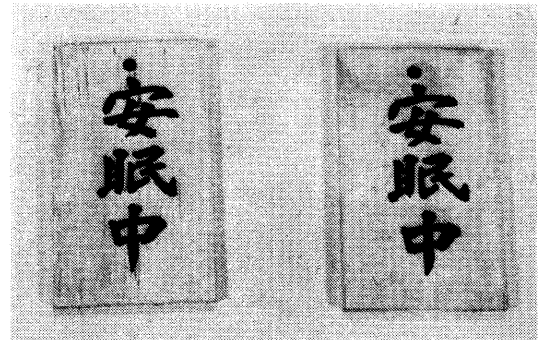 安眠中
安眠中